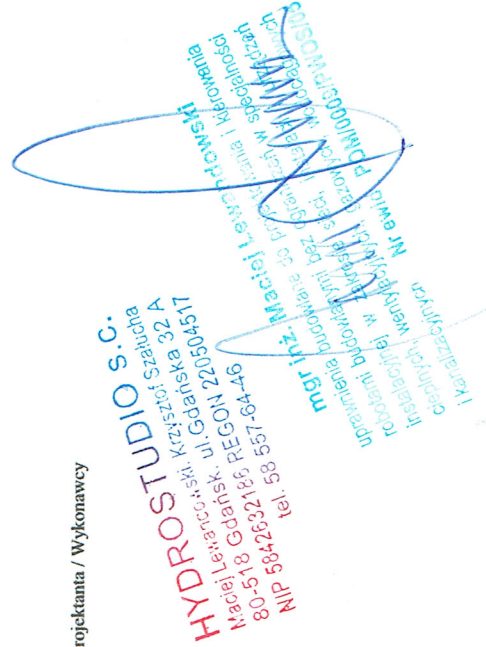 rojektanta / Wykonawcy
HYDROSTUDIO s.c.
Maciej Lewandowski, Krzysztof Szałucha
80-518 Gdańsk, ul. Gdańska 32 A
NIP 5842632186 REGON 220504517
tel. 58 557-64-46
mgr inż. Maciej Lewandowski
uprawnienia budowlane do projektowania i kierowania
robotami budowlanymi bez ograniczeń w specjalności
instalacyjnej w zakresie sieci, instalacji i urządzeń
cieplnych, wentylacyjnych, gazowych, wodociągowych
i kanalizacyjnych Nr ewid. POM/0003/PWOS/05